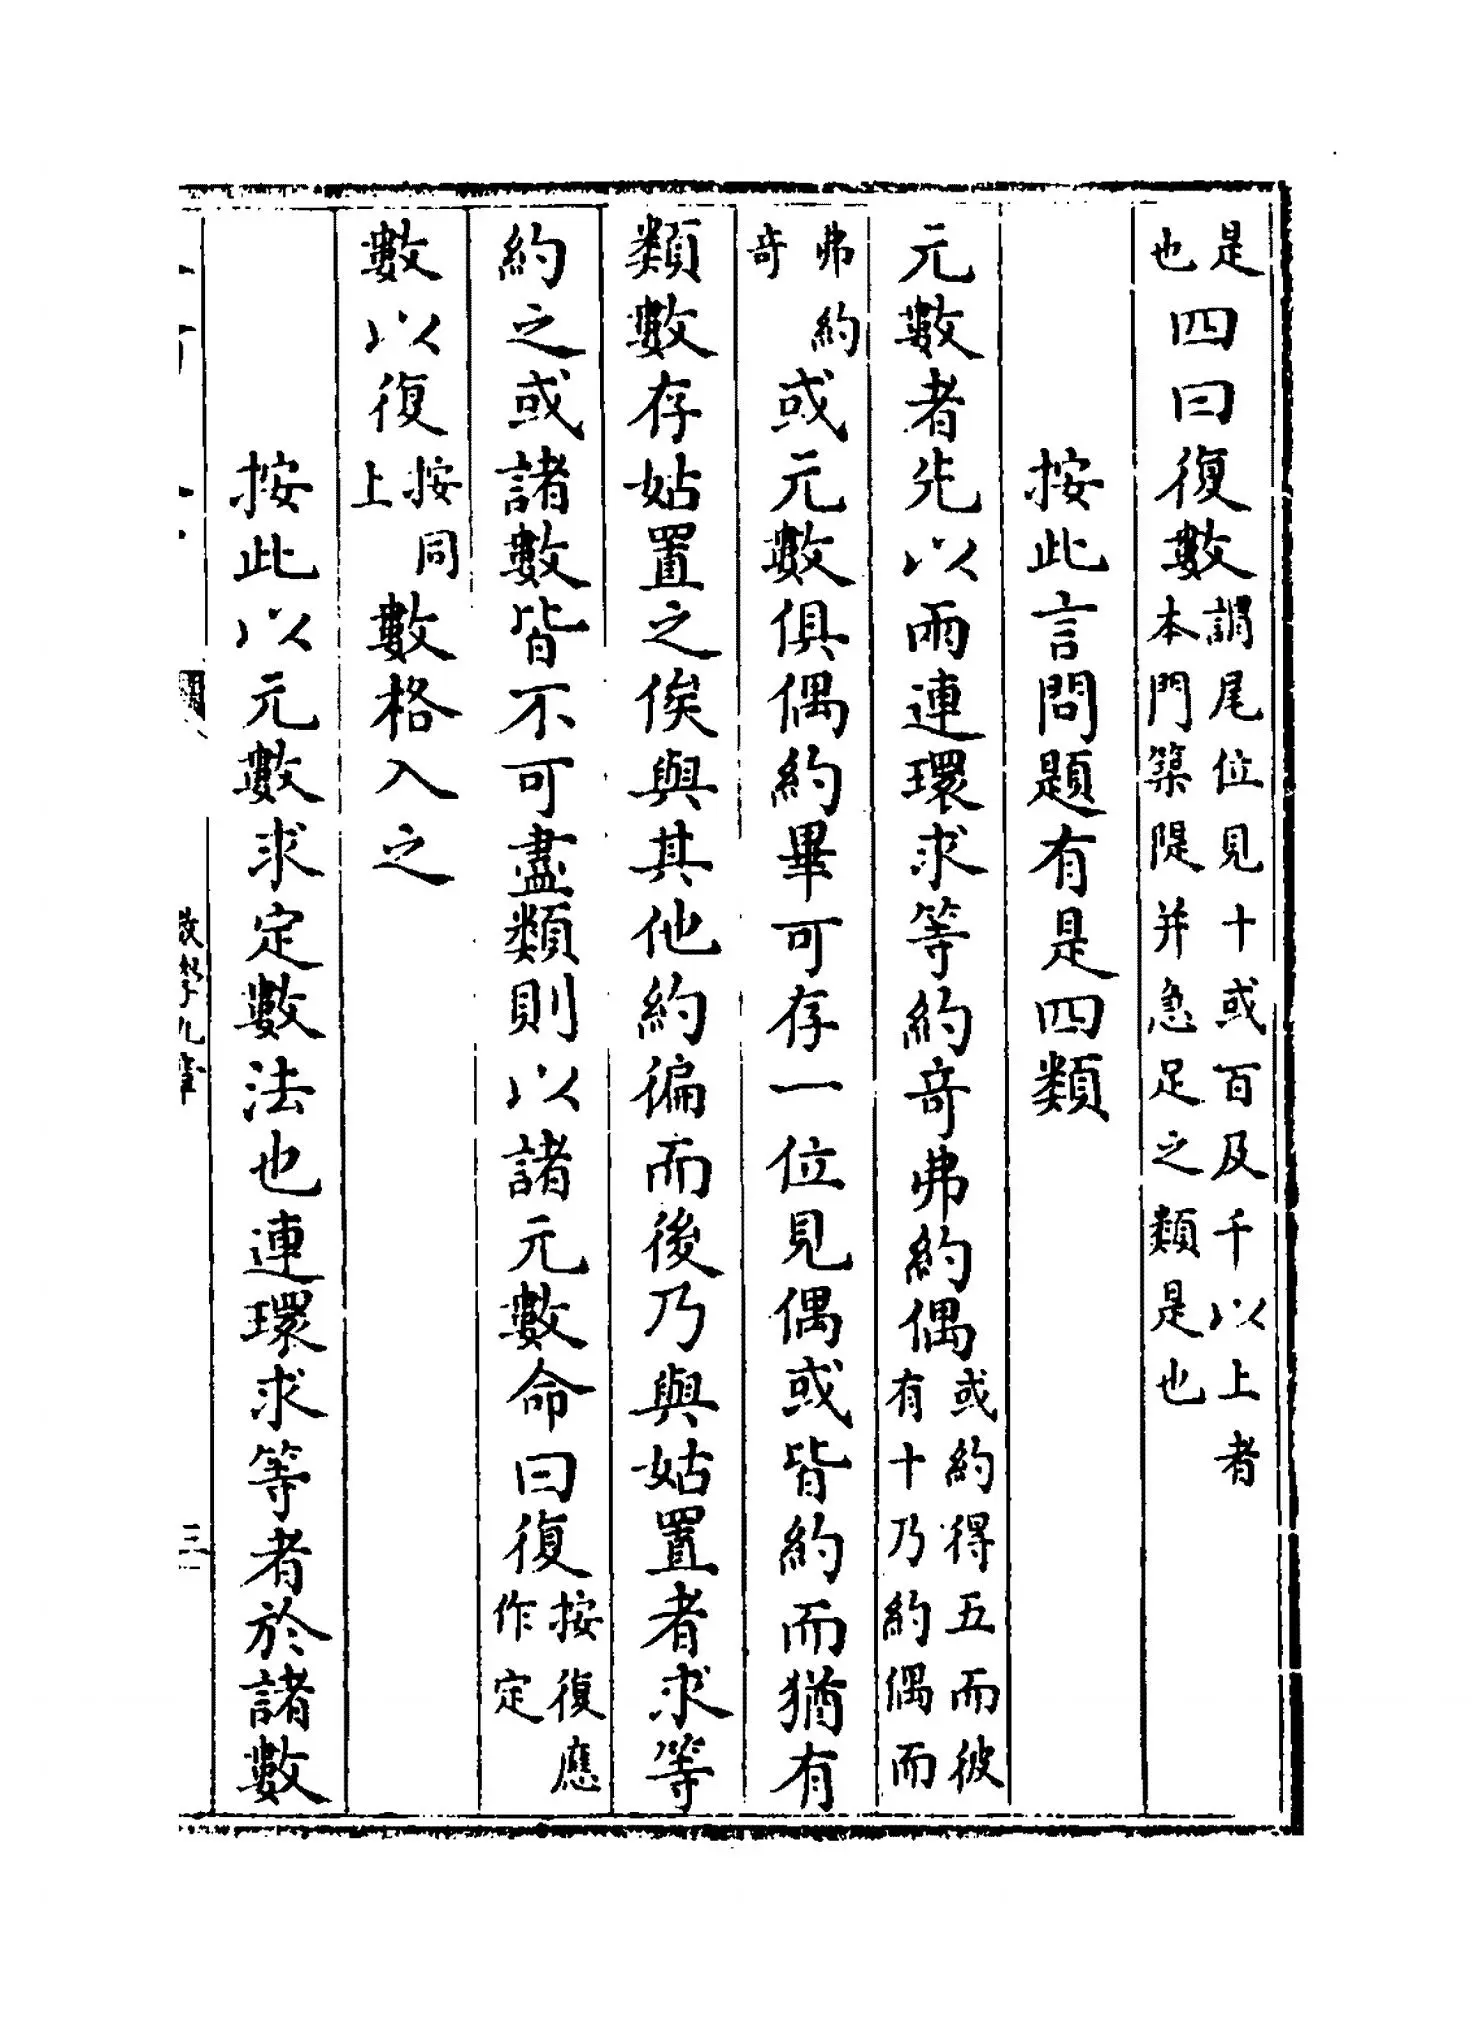 是也四曰復數謂尾位見十或百及千以上者本門築隄并急足之類是也
按此言問題有是四類
元數者先以兩連環求等約奇弗約偶或約得五而彼有十乃約偶而
弗約奇或元數俱偶約畢可存一位見偶或皆約而猶有
類數存姑置之俟與其他約徧而後乃與姑置者求等
約之或諸數皆不可盡類則以諸元數命曰復按復應作定
數以復按同上數格入之
按此以元數求定數法也連環求等者於諸數
數學九章
三